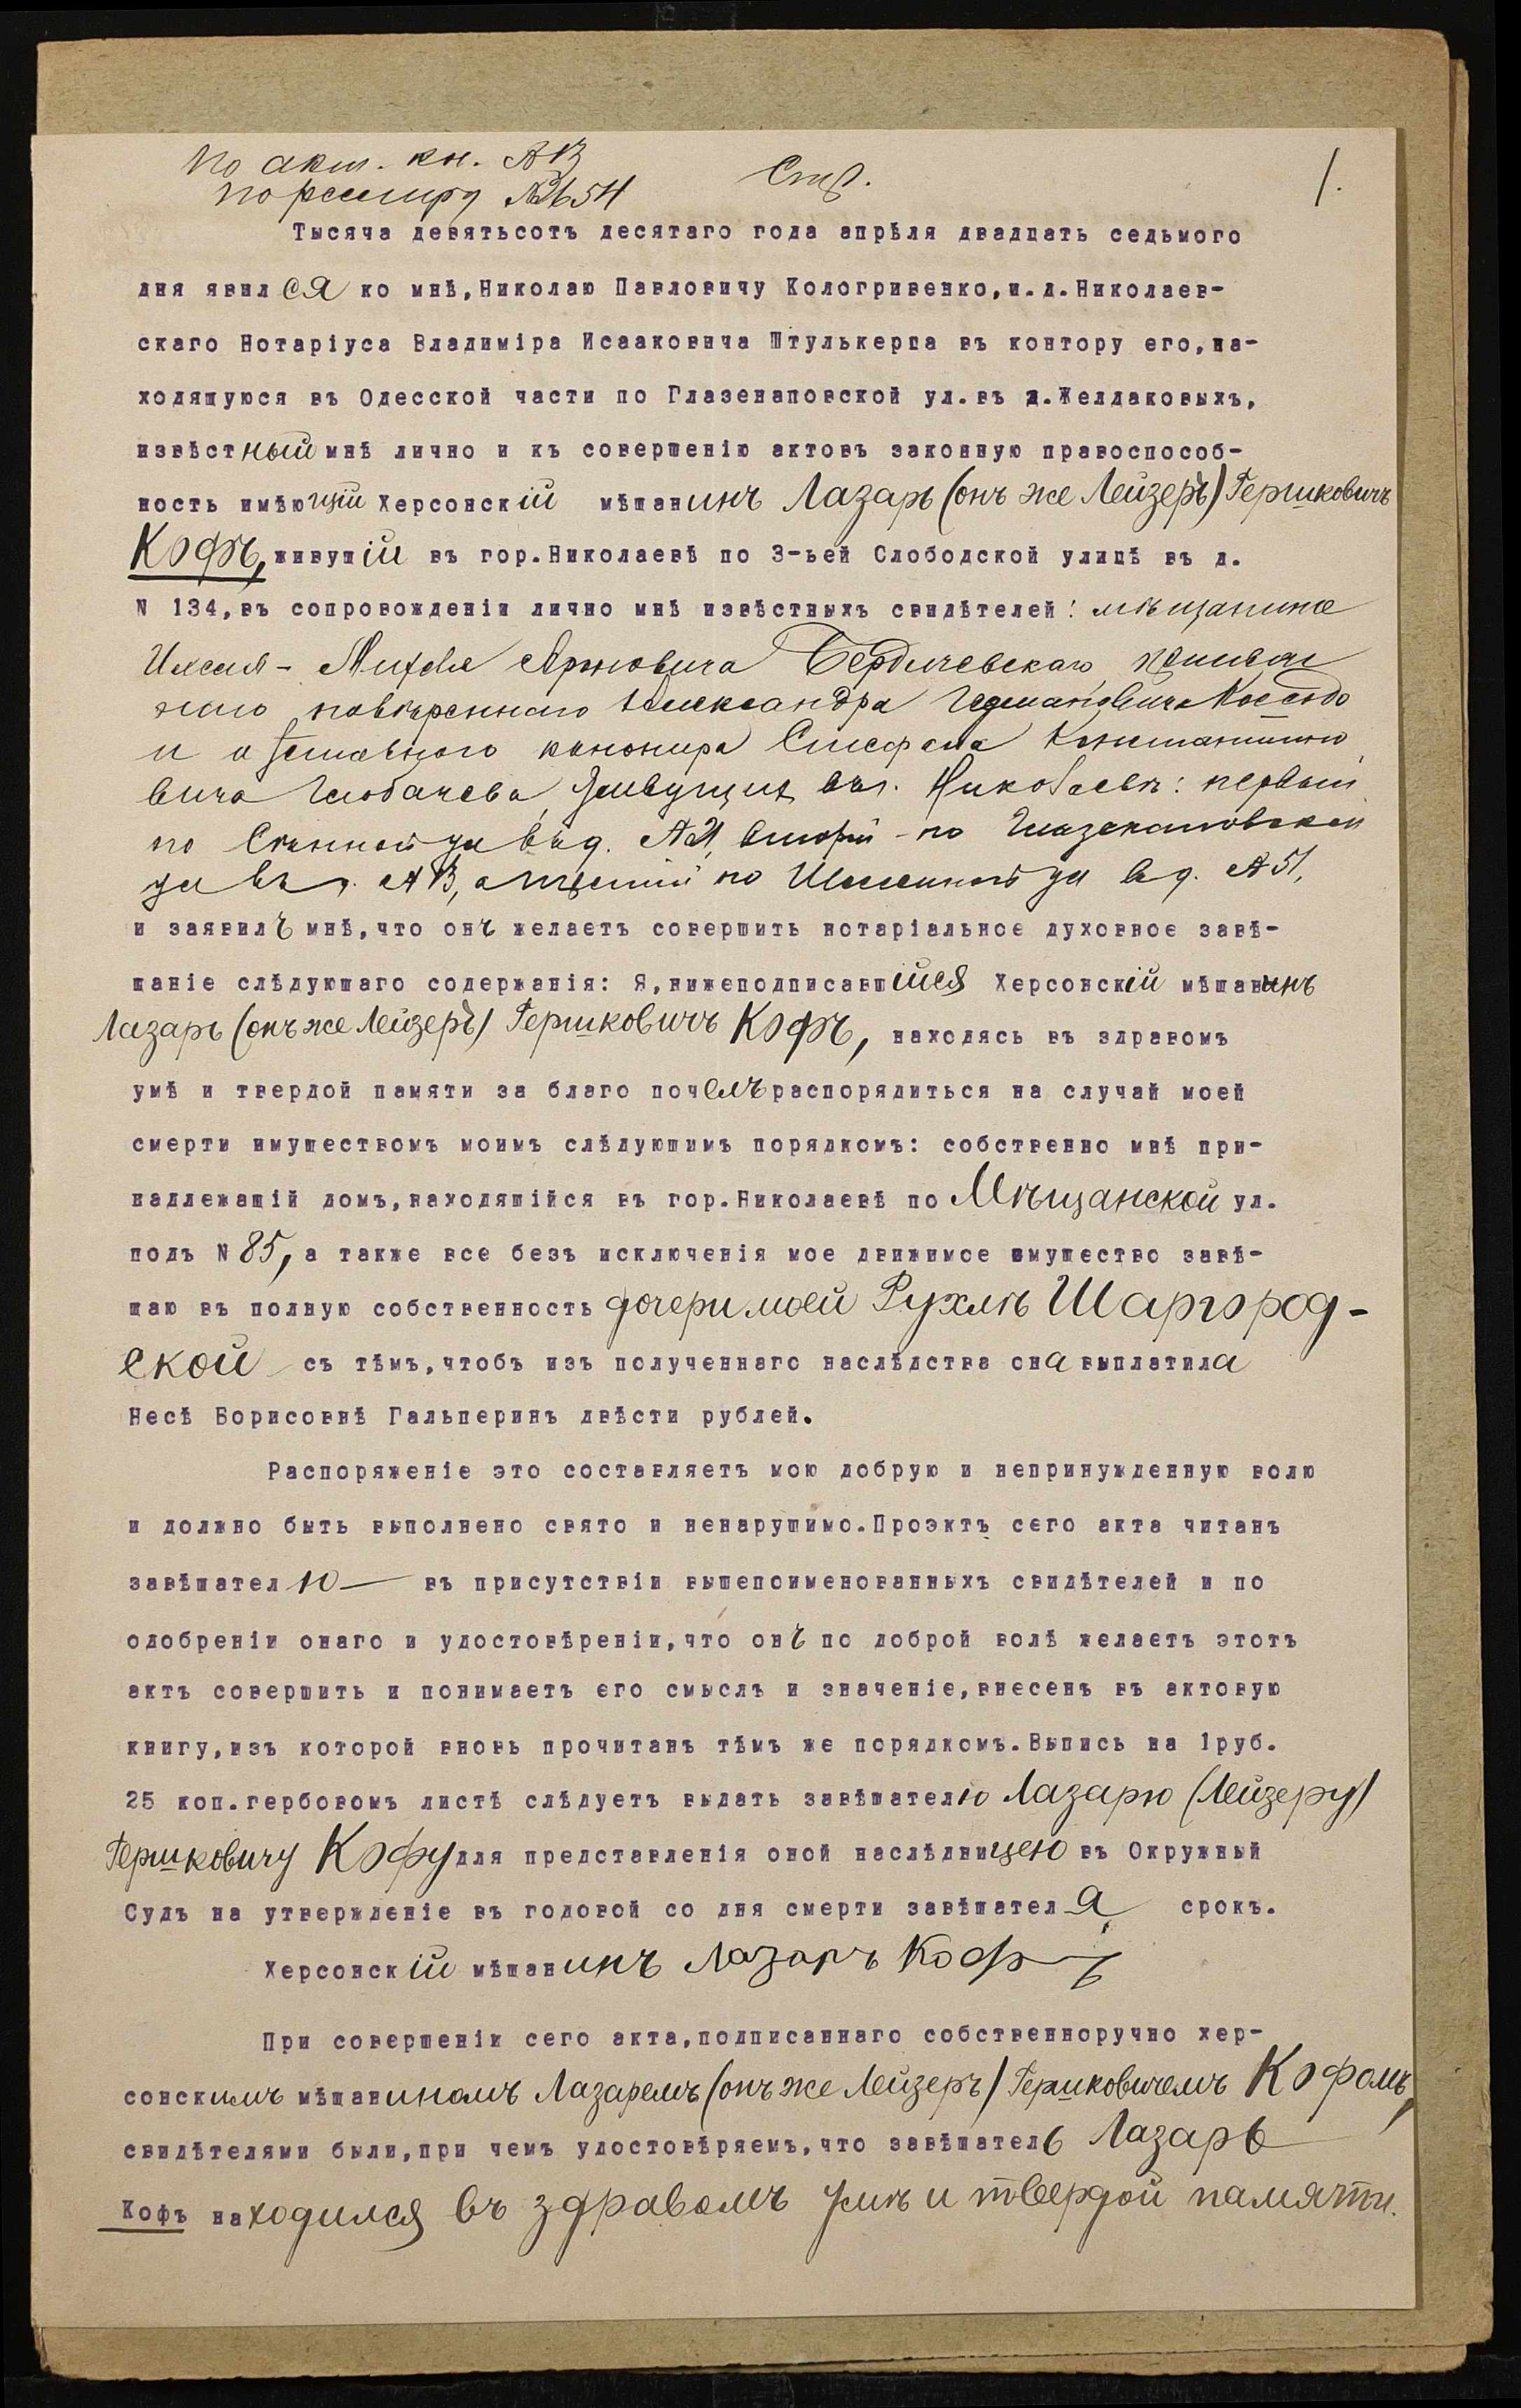 По акт. кн. №
по реестру № 2654
Стр.
1.
Тысяча девятьсотъ десятаго года апрѣля двадцать седьмого
дня явился ко мнѣ,Николаю Павловичу Кологривенко,и.д.Николаев-
скаго Нотаріуса Владиміра Исааковича Штулькерца въ контору его,на-
ходящуюся въ Одесской части по Глазенаповской ул.въ д.Желдаковыхъ,
извѣстный мнѣ лично и къ совершенію актовъ законную правоспособ-
ность имѣющій Херсонскій мѣщанинъ Лазарь (онъ же Лейзеръ) Гершковичъ
Кофъ, живущій въ гор.Николаевѣ по 3-ьей Слободской улицѣ въ д.
N 134,въ сопровожденіи лично мнѣ извѣстныхъ свидѣтелей: мѣщанина
Бердичевскаго,
повѣреннаго Александра
и отставного канонира Стефана Константино
вича живущихъ въ г. Николаевѣ: первый
по Сѣнной ул въ д. второй - по Глазенаповской
ул въ д. а третій по ул въ д. № 51,
и заявилъ мнѣ,что онъ желаетъ совершить нотаріальное духовное завѣ-
щаніе слѣдующаго содержанія: Я,нижеподписавшійся Херсонскій мѣщанинъ
Лазарь (онъ же Лейзеръ) Гершковичъ Кофъ, находясь въ здравомъ
умѣ и твердой памяти за благо почелъ распорядиться на случай моей
смерти имуществомъ моимъ слѣдующимъ порядкомъ: собственно мнѣ при-
надлежащій домъ,находящійся въ гор.Николаевѣ по Мѣщанской ул.
подъ N 85, а также все безъ исключенія мое движимое имущество завѣ-
щаю въ полную собственность дочери моей Рухлѣ Шаргород-
ской съ тѣмъ,чтобъ изъ полученнаго наслѣдства она выплатила
Несѣ Борисовнѣ Гальперинъ двѣсти рублей.
Распоряженіе это составляетъ мою добрую и непринужденную волю
и должно быть выполнено свято и ненарушимо.Проэктъ сего акта читанъ
завѣщателю — въ присутствіи вышепоименованныхъ свидѣтелей и по
одобреніи онаго и удостовѣреніи,что онъ по доброй волѣ желаетъ этотъ
актъ совершить и понимаетъ его смыслъ и значеніе,внесенъ въ актовую
книгу,изъ которой вновь прочитанъ тѣмъ же порядкомъ.Выпись на 1руб.
25 коп.гербовомъ листѣ слѣдуетъ выдать завѣщателю Лазарю (Лейзеру)
Гершковичу Кофу для представленія оной наслѣдницею въ Окружный
Судъ на утвержденіе въ годовой со дня смерти завѣщателя срокъ.
Херсонскій мѣщанинъ Лазарь Кофъ
При совершеніи сего акта,подписаннаго собственноручно хер-
сонскимъ мѣщаниномъ Лазаремъ (онъ же Лейзеръ) Гершковичемъ Кофомъ,
свидѣтелями были,при чемъ удостовѣряемъ,что завѣщатель Лазарь
Кофъ находился въ здравомъ умѣ и твердой памяти.